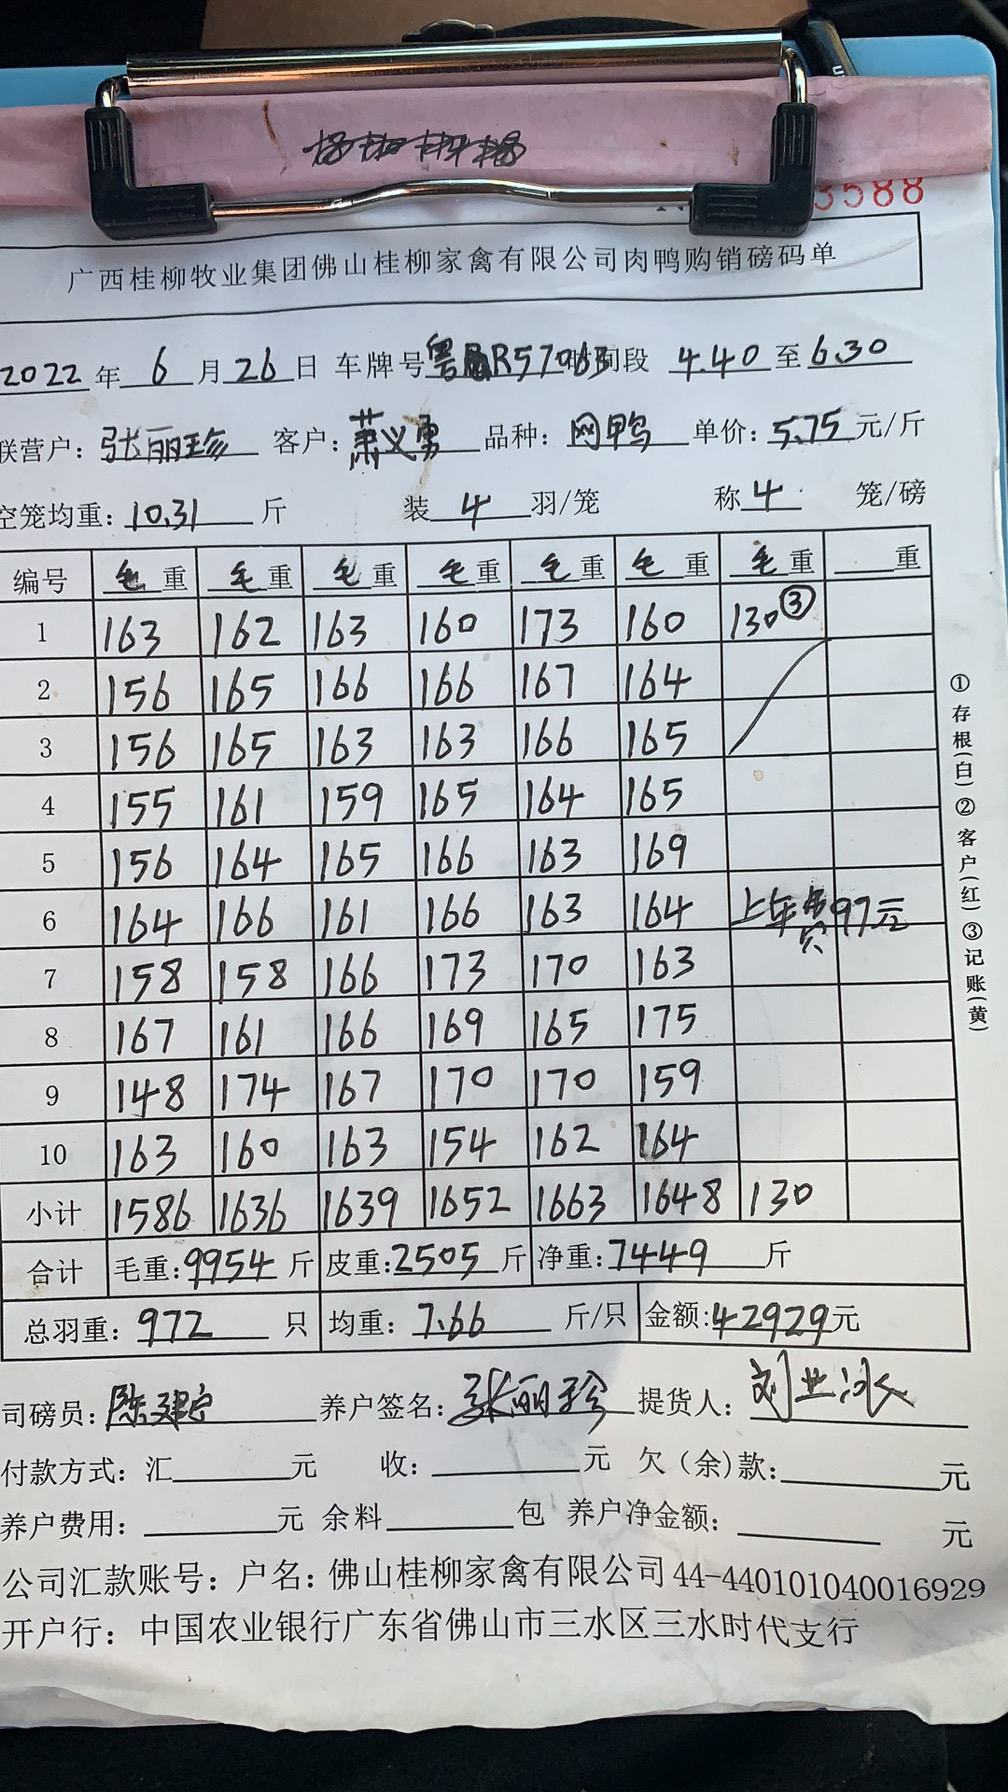 3588
广西桂柳牧业集团佛山桂柳家禽有限公司肉鸭购销磅码单
2022年6月26日 车牌号 粤 R57063 时间段 4.40至6.30
联营户：张丽珍 客户：萧义勇 品种：网鸭 单价：5.75元/斤
空笼均重：10.31斤 装4羽/笼 称4笼/磅
编号 毛重 毛重 毛重 毛重 毛重 毛重 毛重 重
1 163 162 163 160 173 160 130③
2 156 165 166 166 167 164
3 156 165 163 163 166 165
4 155 161 159 165 164 165
5 156 164 165 166 163 169
6 164 166 161 166 163 164 上车费97元
7 158 158 166 173 170 163
8 167 161 166 169 165 175
9 148 174 167 170 170 159
10 163 160 163 154 162 164
小计 1586 1636 1639 1652 1663 1648 130
合计 毛重：9954斤 皮重：2505斤 净重：7449斤
总羽重：972只 均重：7.66斤/只 金额：42929元
司磅员：陈建 养户签名：张丽珍 提货人：刘业
付款方式：汇 元 收： 元 欠（余）款： 元
养户费用： 元 余料 包 养户净金额： 元
公司汇款账号：户名：佛山桂柳家禽有限公司44-440101040016929
开户行：中国农业银行广东省佛山市三水区三水时代支行
①存根(白)②客户(红)③记账(黄)